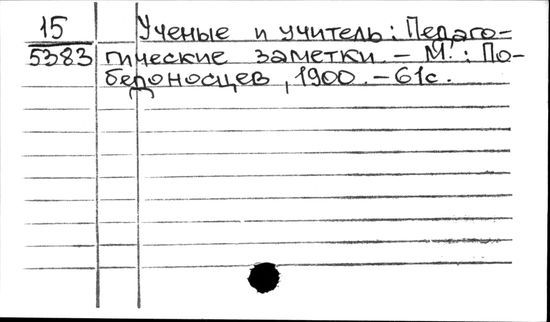 15 Ученые и учитель: Педаго-
5383 гические заметки. - М.: По-
бедоносцев, 1900. - 61с.